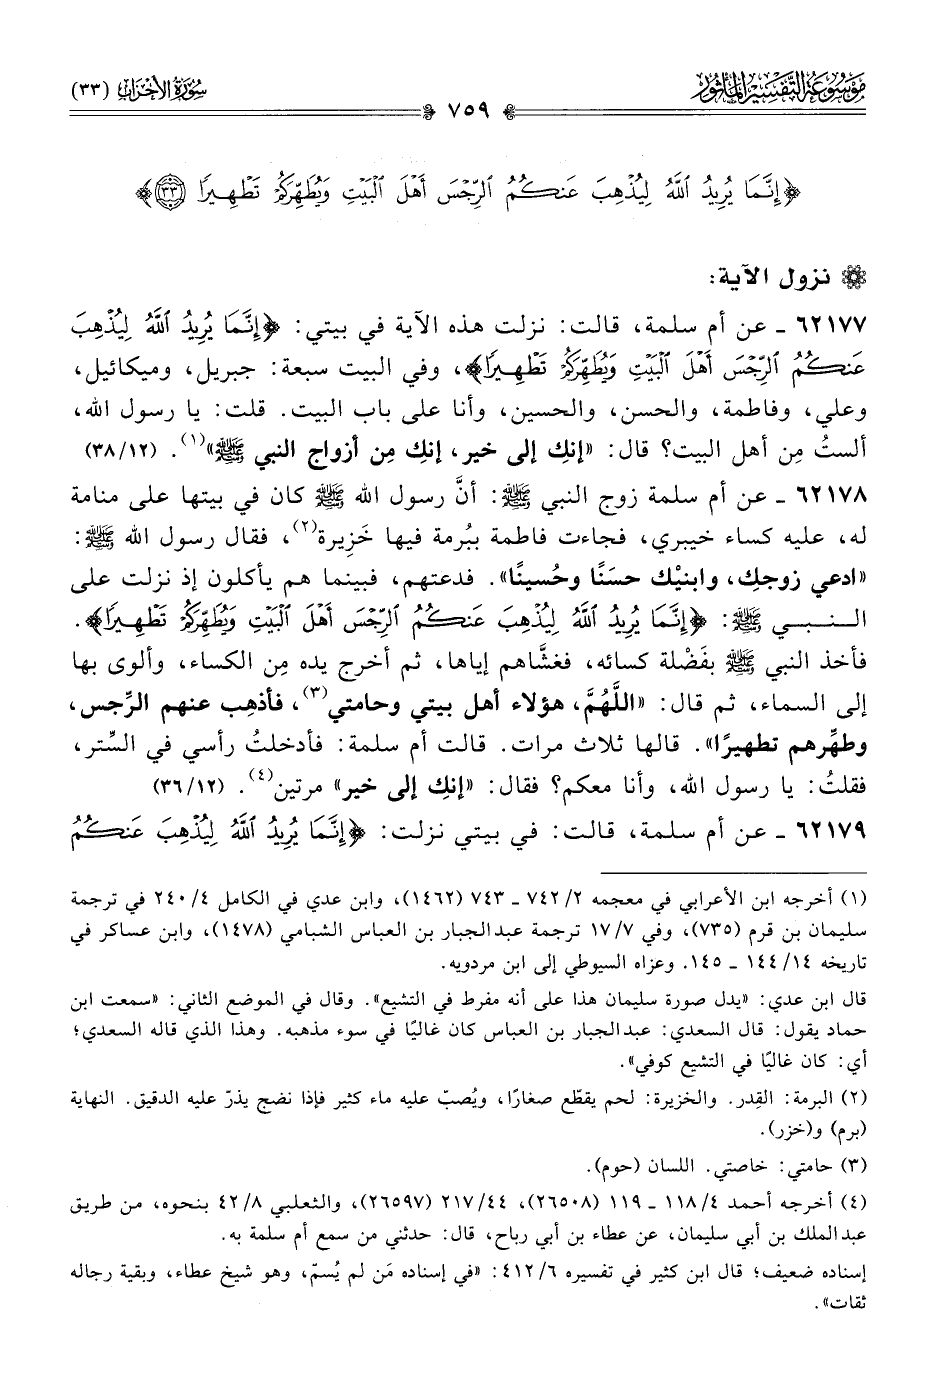 مَوْسُوعَة التَّفْسِير المَأْثُور
سُورَةُ الأَحْزَاب (٣٣)
٧٥٩
﴿إِنَّمَا يُرِيدُ ٱللَّهُ لِيُذْهِبَ عَنكُمُ ٱلرِّجْسَ أَهْلَ ٱلْبَيْتِ وَيُطَهِّرَكُمْ تَطْهِيرًا ٣٣﴾
نزول الآية:
٦٢١٧٧ ـ عن أم سلمة، قالت: نزلت هذه الآية في بيتي: ﴿إِنَّمَا يُرِيدُ ٱللَّهُ لِيُذْهِبَ
عَنكُمُ ٱلرِّجْسَ أَهْلَ ٱلْبَيْتِ وَيُطَهِّرَكُمْ تَطْهِيرًا﴾، وفي البيت سبعة: جبريل، وميكائيل،
وعلي، وفاطمة، والحسن، والحسين، وأنا على باب البيت. قلت: يا رسول الله،
ألستُ مِن أهل البيت؟ قال: «إنكِ إلى خير، إنكِ مِن أزواج النبي ﷺ»(١). (٣٨/١٢)
٦٢١٧٨ ـ عن أم سلمة زوج النبي ﷺ: أنَّ رسول الله ﷺ كان في بيتها على منامة
له، عليه كساء خيبري، فجاءت فاطمة ببُرمة فيها خَزِيرة(٢)، فقال رسول الله ﷺ:
«ادعي زوجكِ، وابنيْك حسَنًا وحُسينًا». فدعتهم، فبينما هم يأكلون إذ نزلت على
النـبـي ﷺ: ﴿إِنَّمَا يُرِيدُ ٱللَّهُ لِيُذْهِبَ عَنكُمُ ٱلرِّجْسَ أَهْلَ ٱلْبَيْتِ وَيُطَهِّرَكُمْ تَطْهِيرًا﴾.
فأخذ النبي ﷺ بفَضْلة كسائه، فغشَّاهم إياها، ثم أخرج يده مِن الكساء، وألوى بها
إلى السماء، ثم قال: «اللَّهُمَّ، هؤلاء أهل بيتي وحامتي(٣)، فأذهِب عنهم الرِّجس،
وطهِّرهم تطهيرًا». قالها ثلاث مرات. قالت أم سلمة: فأدخلتُ رأسي في السِّتر،
فقلتُ: يا رسول الله، وأنا معكم؟ فقال: «إنكِ إلى خير» مرتين(٤). (٣٦/١٢)
٦٢١٧٩ ـ عن أم سلمة، قالت: في بيتي نزلت: ﴿إِنَّمَا يُرِيدُ ٱللَّهُ لِيُذْهِبَ عَنكُمُ
(١) أخرجه ابن الأعرابي في معجمه ٢/ ٧٤٢ ـ ٧٤٣ (١٤٦٢)، وابن عدي في الكامل ٤/ ٢٤٠ في ترجمة
سليمان بن قرم (٧٣٥)، وفي ٧/ ١٧ ترجمة عبدالجبار بن العباس الشبامي (١٤٧٨)، وابن عساكر في
تاريخه ١٤/ ١٤٤ ـ ١٤٥. وعزاه السيوطي إلى ابن مردويه.
قال ابن عدي: «يدل صورة سليمان هذا على أنه مفرط في التشيع». وقال في الموضع الثاني: «سمعت ابن
حماد يقول: قال السعدي: عبدالجبار بن العباس كان غاليًا في سوء مذهبه. وهذا الذي قاله السعدي؛
أي: كان غاليًا في التشيع كوفي».
(٢) البرمة: القِدر. والخزيرة: لحم يقطّع صغارًا، ويُصبّ عليه ماء كثير فإذا نضج يذرّ عليه الدقيق. النهاية
(برم) و(خزر).
(٣) حامتي: خاصتي. اللسان (حوم).
(٤) أخرجه أحمد ٤/ ١١٨ ـ ١١٩ (٢٦٥٠٨)، ٤٤/ ٢١٧ (٢٦٥٩٧)، والثعلبي ٨/ ٤٢ بنحوه، من طريق
عبدالملك بن أبي سليمان، عن عطاء بن أبي رباح، قال: حدثني من سمع أم سلمة به.
إسناده ضعيف؛ قال ابن كثير في تفسيره ٦/ ٤١٢: «في إسناده مَن لم يُسمّ، وهو شيخ عطاء، وبقية رجاله
ثقات».